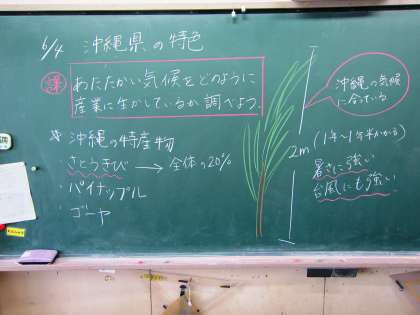 6/4 沖縄県の特色
課
あたたかい気候をどのように
産業に生かしているか調べよう。
沖縄の特産物
さとうきび → 全体の20%
・パイナップル
・ゴーヤ
沖縄の気候
に合っている
2m
(1年〜1年半かかる)
暑さに強い
台風にも強い